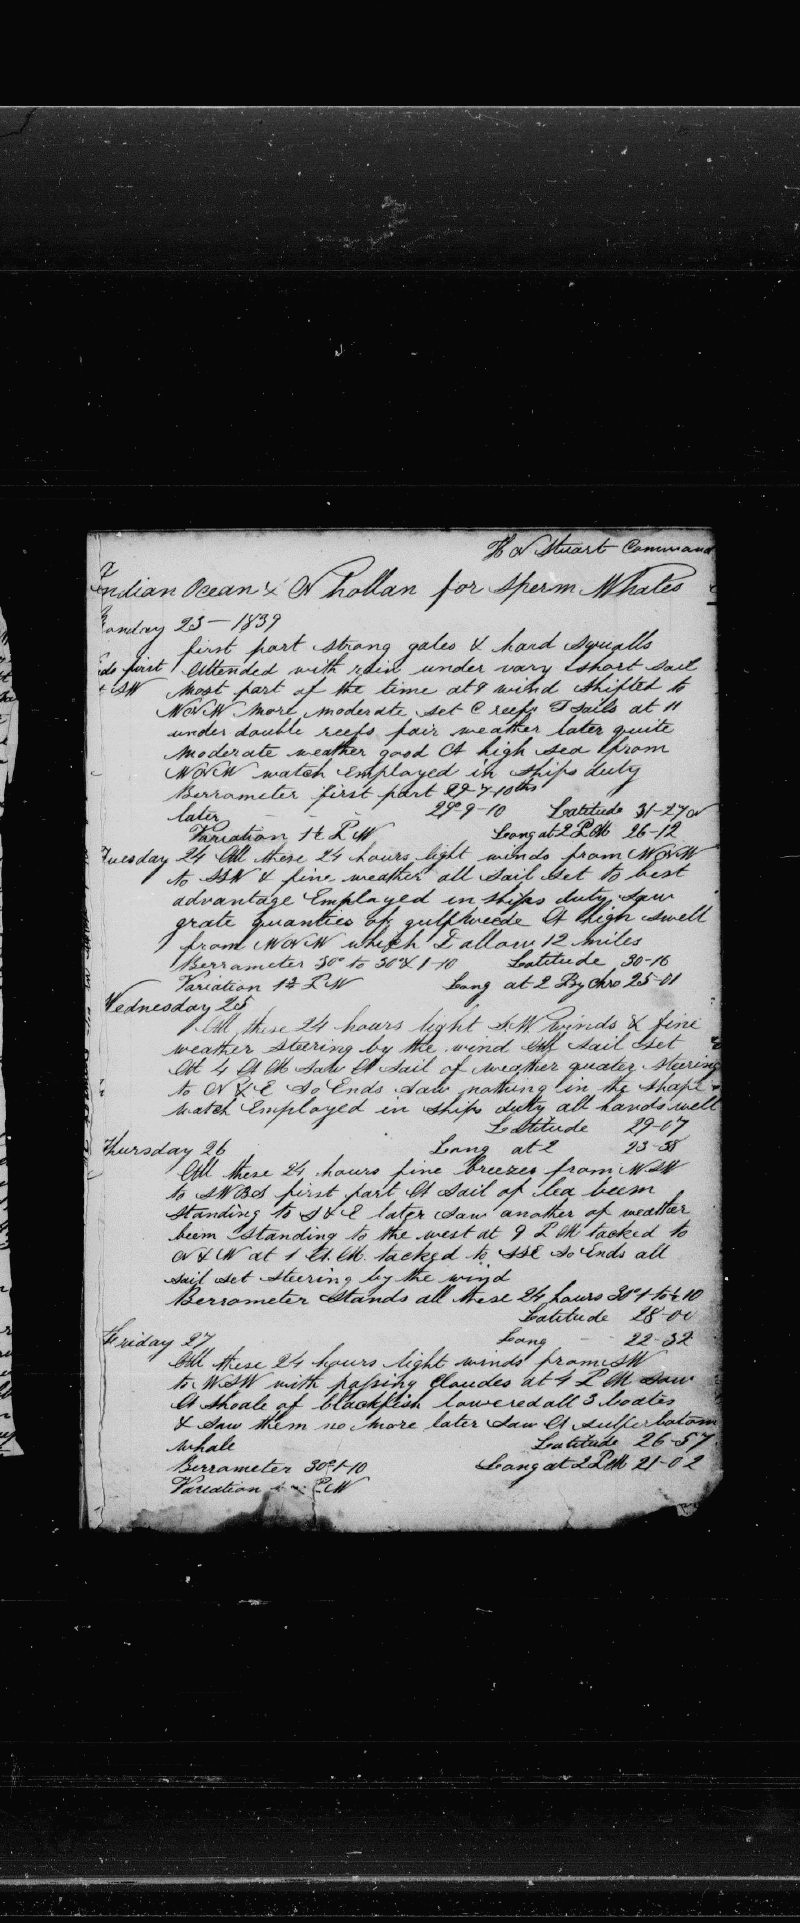 H N Stuart Command
Indian Ocean & N hollan for Sperm Whales
Monday 23 - 1839
first part strong gales & hard Squalls
first Attended with rain under vary short sail
& SW Most part of the time at 9 wind shifted to
WNW more moderate set C reefs T sails at 11
under double reefs fair weather later quite
Moderate weather good A high sea from
WNW watch Employed in ships duty
Berrometer first part 29-7-10ths
later - - 29-9-10 Latitude 31-27 N
Variation 1½ P W Long at 2 P M 26-12
Tuesday 24 All these 24 hours light winds from WNW
to SSW & fine weather all sail set to best
advantage Employed in ships duty saw
grate quanties of gulfweede A high swell
from WNW which I allow 12 miles
Berrameter 30° to 30° & 1-10 Latitude 30-16
Variation P W Long at 2 By Chro 25-01
Wednesday 25
All these 24 hours light S.W. winds & fine
weather steering by the wind all sail set
At 4 A M saw A sail of weather quater steering
to N & E So Ends saw nothing in the shape
watch Employed in ships duty all hands well
Latitude 29-07
Thursday 26 Long at 2 23-38
All these 24 hours fine breezes from WSW
to SWBS first part A sail of lea beem
standing to S & E later saw another of weather
beem standing to the west at 9 P M tacked to
N & W at 1 A.M. tacked to SSE So Ends all
sail set steering by the wind
Berrometer stands all these 24 hours 30°
Latitude 28-00
Friday 27 Long - 22-32
All these 24 hours light winds from SW
to WSW with passing Cloudes at 4 P M saw
A shoale of blackfish lowered all 3 boates
& saw them no more later saw A sulferbotom
whale Latitude 26-57
Berrameter 30°1-10 Long at 2 P M 21-02
Variation P W